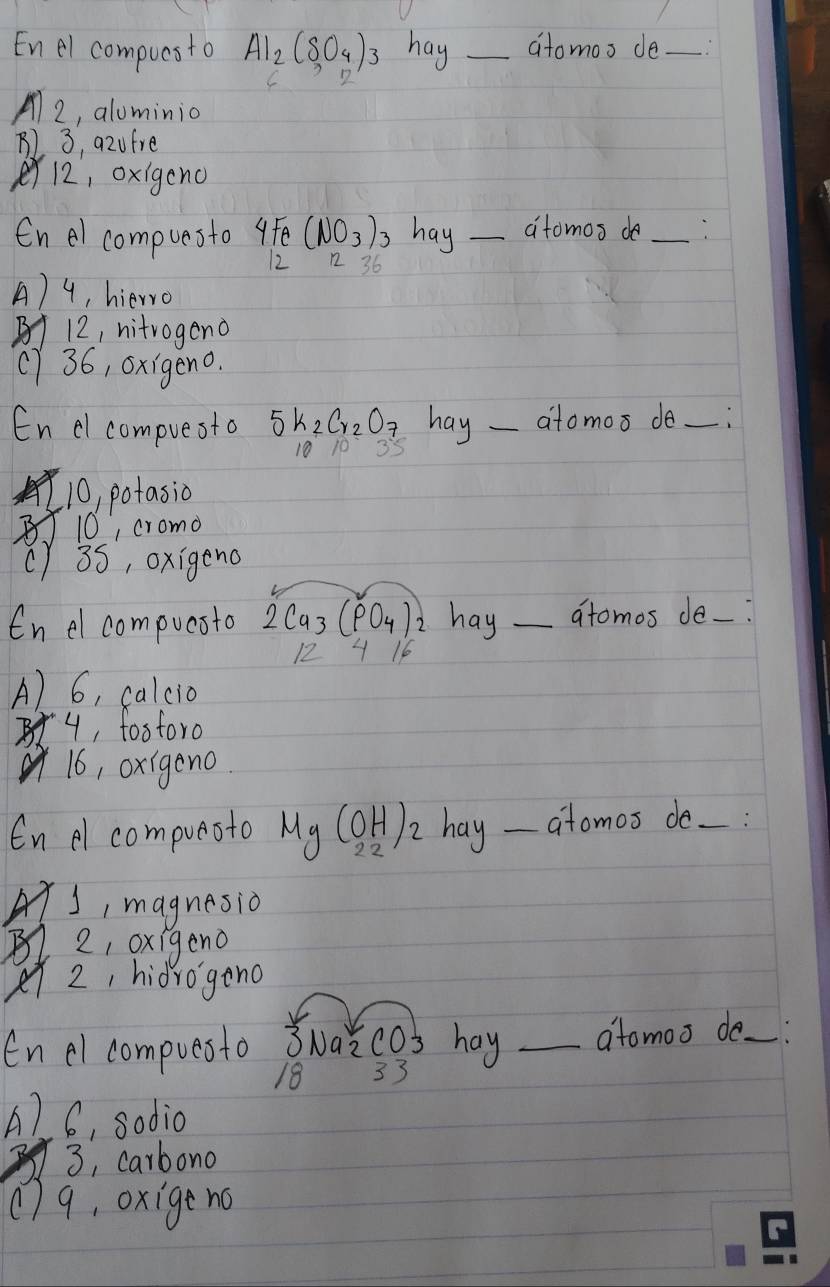 En el compuesto Al2(SO4)3 hay __ átomos de __:
6 3 12
A) 2, aluminio
B) 3, azufre
C) 12, oxígeno
En el compuesto 4Fe(NO3)3 hay __ átomos de __:
12 12 36
A) 4, hierro
B) 12, nitrogeno
C) 36, oxígeno.
En el compuesto 5K2Cr2O7 hay __ átomos de __:
10 10 35
A) 10, potasio
B) 10, cromo
C) 35, oxígeno
En el compuesto 2Ca3(PO4)2 hay __ átomos de __:
12 4 16
A) 6, calcio
B) 4, fosforo
C) 16, oxígeno.
En el compuesto Mg(OH)2 hay __ átomos de __:
22
A) 1, magnesio
B) 2, oxígeno
C) 2, hidrógeno
En el compuesto 3Na2CO3 hay __ átomos de __:
18 33
A) 6, sodio
B) 3, carbono
C) 9, oxígeno